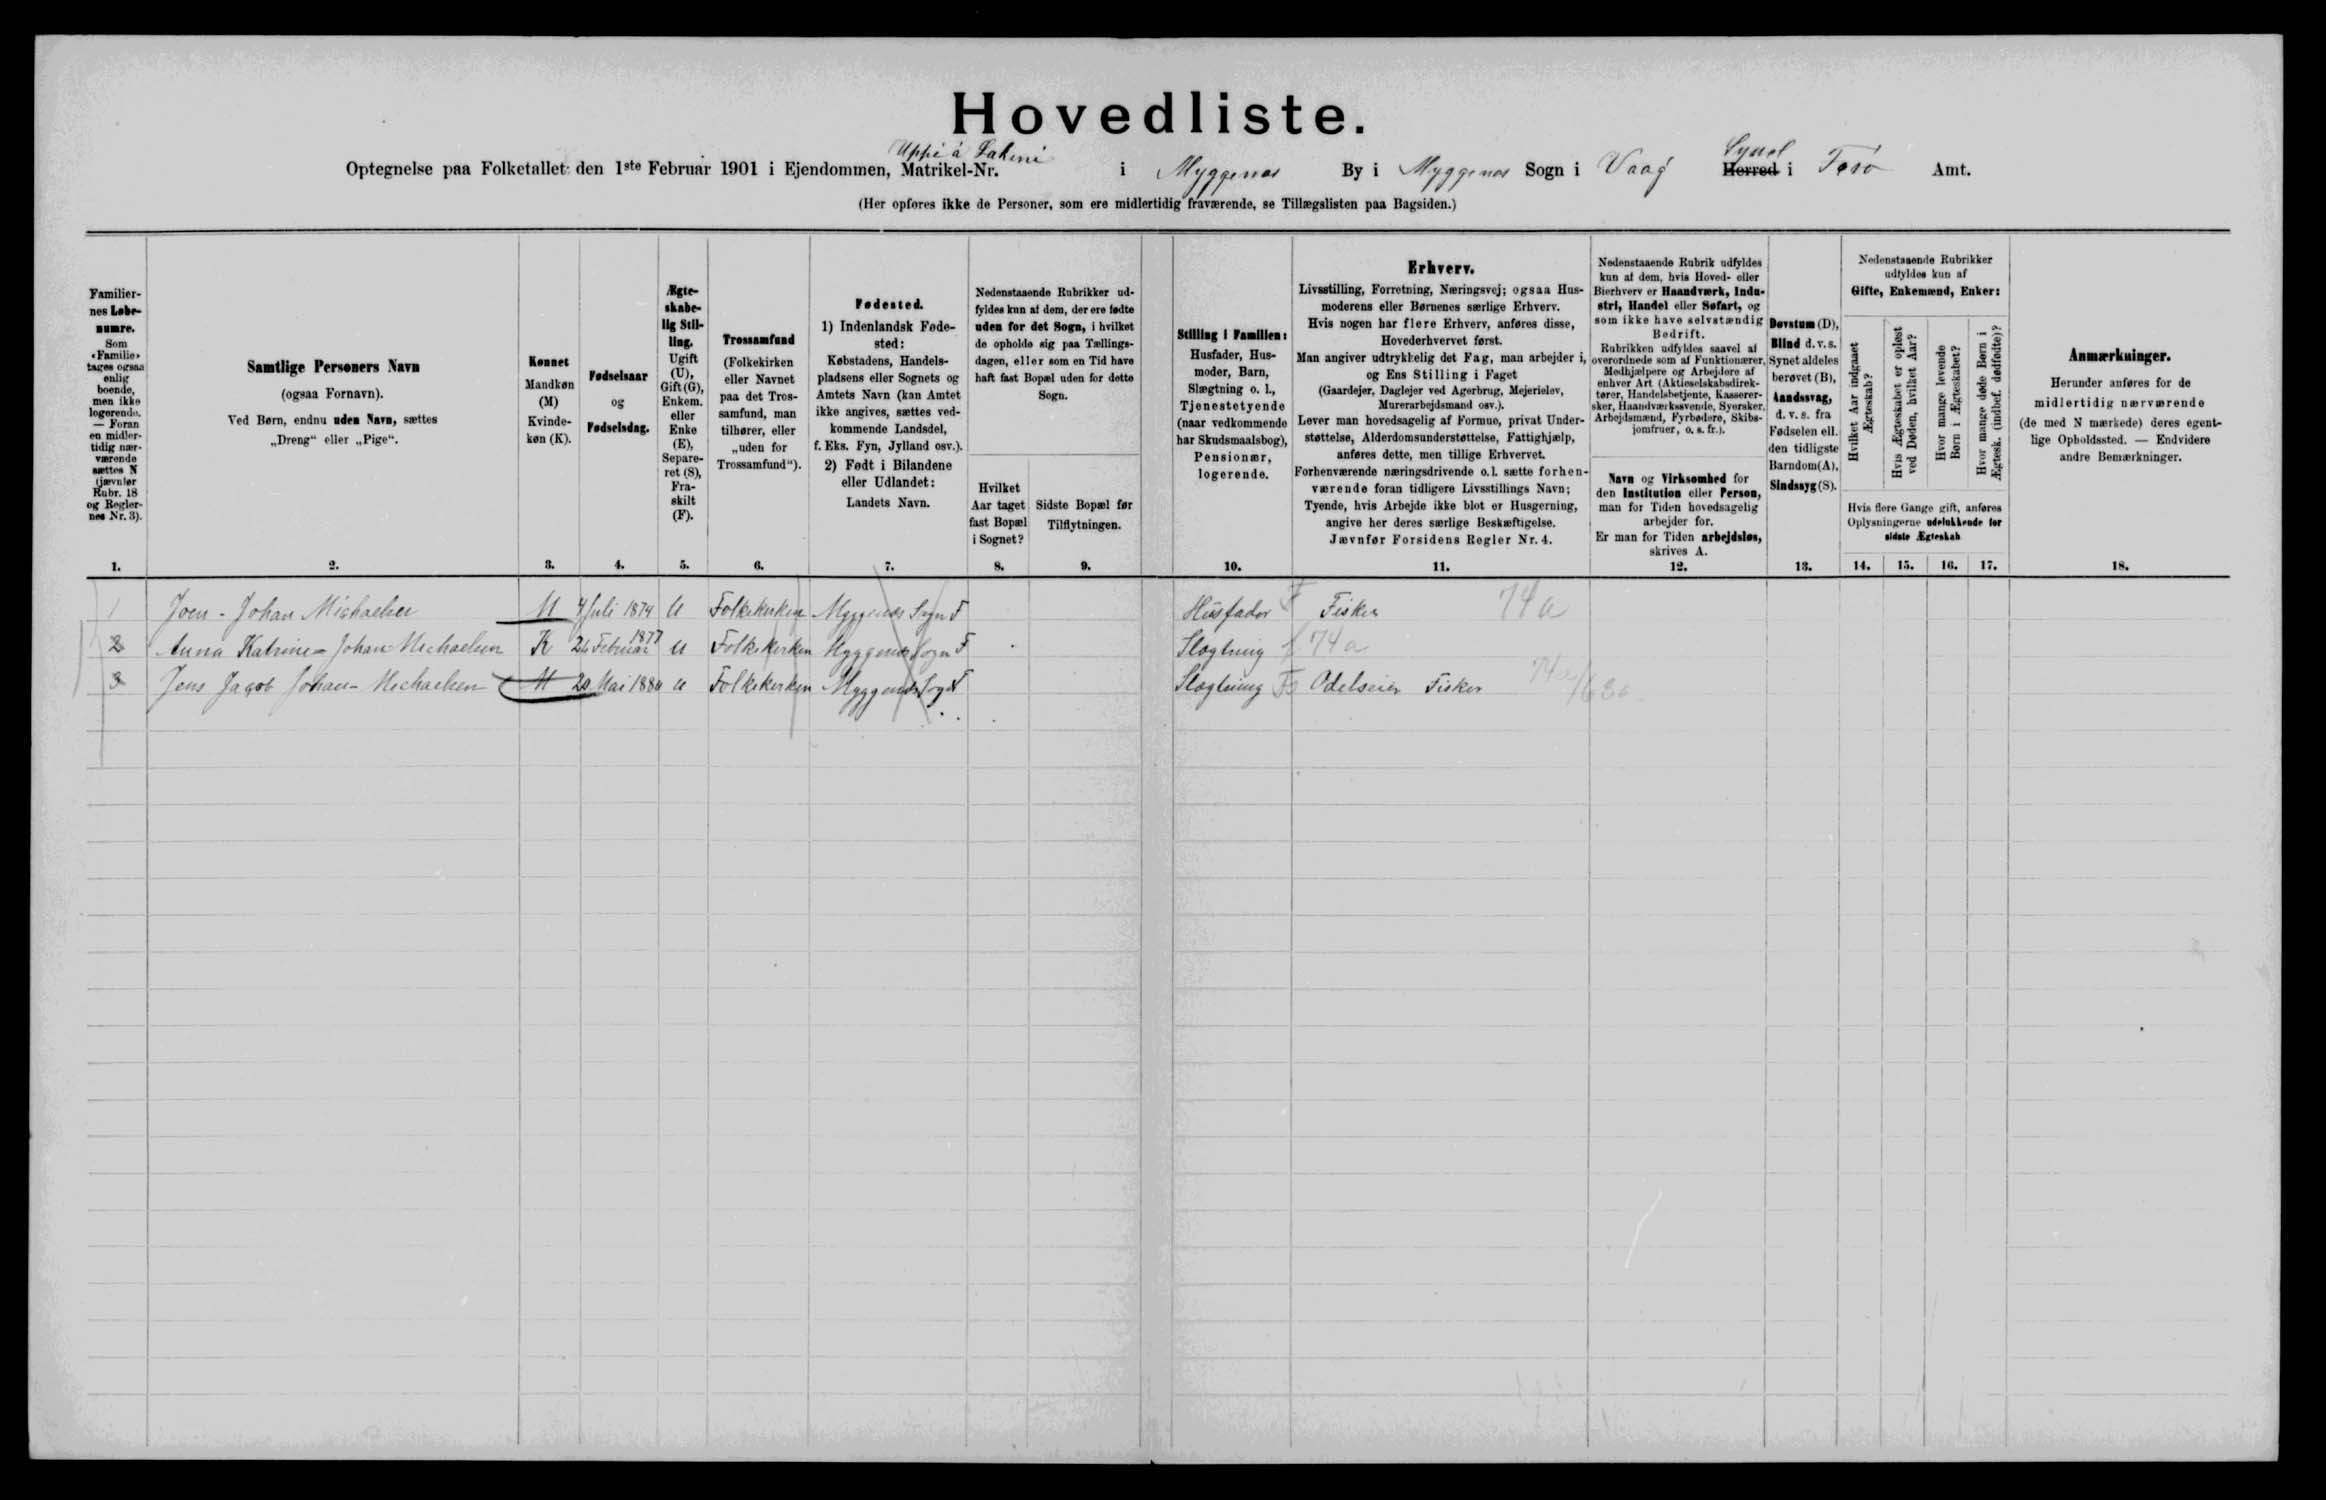 Hovedliste.
Uppi á Lakeni
Optegnelse paa Folketallet den 1ste Februar 1901 i Ejendommen, Matrikel-Nr. i Myggenæs By i Myggenæs Sogn i Vaagø Syssel Herred i Færø Amt.
(Her opføres ikke de Personer, som ere midlertidig fraværende, se Tillægslisten paa Bagsiden.)
Familier-
nes Løbe-
numre.
Som
«Familie»
tages ogsaa
enlig
boende,
men ikke
logerende.
— Foran
en midler-
tidig nær-
værende
sættes N
(jævnfør
Rubr. 18
og Regler-
nes Nr. 3).
1.
Samtlige Personers Navn
(ogsaa Fornavn).
Ved Børn, endnu uden Navn, sættes
„Dreng“ eller „Pige“.
2.
Kønnet
Mandkøn
(M)
Kvinde-
køn (K).
3.
Fødselsaar
og
Fødselsdag.
4.
Ægte-
skabe-
lig Stil-
ling.
Ugift
(U),
Gift (G),
Enkem.
eller
Enke
(E),
Separe-
ret (S),
Fra-
skilt
(F).
5.
Trossamfund
(Folkekirken
eller Navnet
paa det Tros-
samfund, man
tilhører, eller
„uden for
Trossamfund“).
6.
Fødested.
1) Indenlandsk Føde-
sted:
Købstadens, Handels-
pladsens eller Sognets og
Amtets Navn (kan Amtet
ikke angives, sættes ved-
kommende Landsdel,
f. Eks. Fyn, Jylland osv.).
2) Født i Bilandene
eller Udlandet:
Landets Navn.
7.
Nedenstaaende Rubrikker ud-
fyldes kun af dem, der ere fødte
uden for det Sogn, i hvilket
de opholde sig paa Tællings-
dagen, eller som en Tid have
haft fast Bopæl uden for dette
Sogn.
Hvilket
Aar taget
fast Bopæl
i Sognet?
8.
Sidste Bopæl før
Tilflytningen.
9.
Stilling i Familien:
Husfader, Hus-
moder, Barn,
Slægtning o. l.,
Tjenestetyende
(naar vedkommende
har Skudsmaalsbog),
Pensionær,
logerende.
10.
Erhverv.
Livsstilling, Forretning, Næringsvej; ogsaa Hus-
moderens eller Børnenes særlige Erhverv.
Hvis nogen har flere Erhverv, anføres disse,
Hovederhvervet først.
Man angiver udtrykkelig det Fag, man arbejder i,
og Ens Stilling i Faget
(Gaardejer, Daglejer ved Agerbrug, Mejerielev,
Murerarbejdsmand osv.).
Lever man hovedsagelig af Formue, privat Under-
støttelse, Alderdomsunderstøttelse, Fattighjælp,
anføres dette, men tillige Erhvervet.
Forhenværende næringsdrivende o. l. sætte forhen-
værende foran tidligere Livsstillings Navn;
Tyende, hvis Arbejde ikke blot er Husgerning,
angive her deres særlige Beskæftigelse.
Jævnfør Forsidens Regler Nr. 4.
11.
Nedenstaaende Rubrik udfyldes
kun af dem, hvis Hoved- eller
Bierhverv er Haandværk, Indu-
stri, Handel eller Søfart, og
som ikke have selvstændig
Bedrift.
Rubrikken udfyldes saavel af
overordnede som af Funktionærer,
Medhjælpere og Arbejdere af
enhver Art (Aktieselskabsdirek-
tører, Handelsbetjente, Kasserer-
sker, Haandværkssvende, Syersker,
Arbejdsmænd, Fyrbødere, Skibs-
jomfruer, o. s. fr.).
Navn og Virksomhed for
den Institution eller Person,
man for Tiden hovedsagelig
arbejder for.
Er man for Tiden arbejdsløs,
skrives A.
12.
Døvstum (D),
Blind d. v. s.
Synet aldeles
berøvet (B),
Aandssvag,
d. v. s. fra
Fødselen ell.
den tidligste
Barndom (A),
Sindssyg (S).
13.
Nedenstaaende Rubrikker
udfyldes kun af
Gifte, Enkemænd, Enker:
Hvilket Aar indgaaet
Ægteskab?
Hvis Ægteskabet er opløst
ved Døden, hvilket Aar?
Hvor mange levende
Børn i Ægteskabet?
Hvor mange døde Børn i
Ægtesk. (indbef. dødfødte)?
Hvis flere Gange gift, anføres
Oplysningerne udelukkende for
sidste Ægteskab
14. 15. 16. 17.
Anmærkninger.
Herunder anføres for de
midlertidig nærværende
(de med N mærkede) deres egent-
lige Opholdssted. — Endvidere
andre Bemærkninger.
18.
1 Joen - Johan Michaelsen M 4 Juli 1874 U Folkekirken Myggenæs Sogn F Husfader F Fisker 74a
2 Anna Katrine - Johan Michaelsen K 26 Februar 1877 U Folkekirken Myggenæs Sogn F Slægtning f 74a
3 Jens Jacob Johan - Michaelsen M 20 Mai 1880 U Folkekirken Myggenæs Sogn F Slægtning Fs Odelseier Fisker 74a/63a